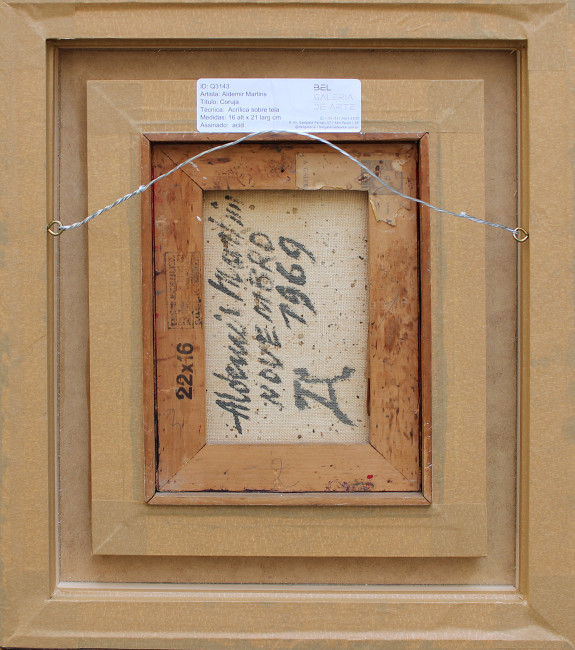 ID: Q3143
Artista: Aldemir Martins
Título: Coruja
Técnica: Acrílica sobre tela
Medidas: 16 alt x 21 larg cm
Assinado: acid
BEL
GALERIA
DE ARTE
22x16
Aldemir Martins
NOVEMBRO
1969